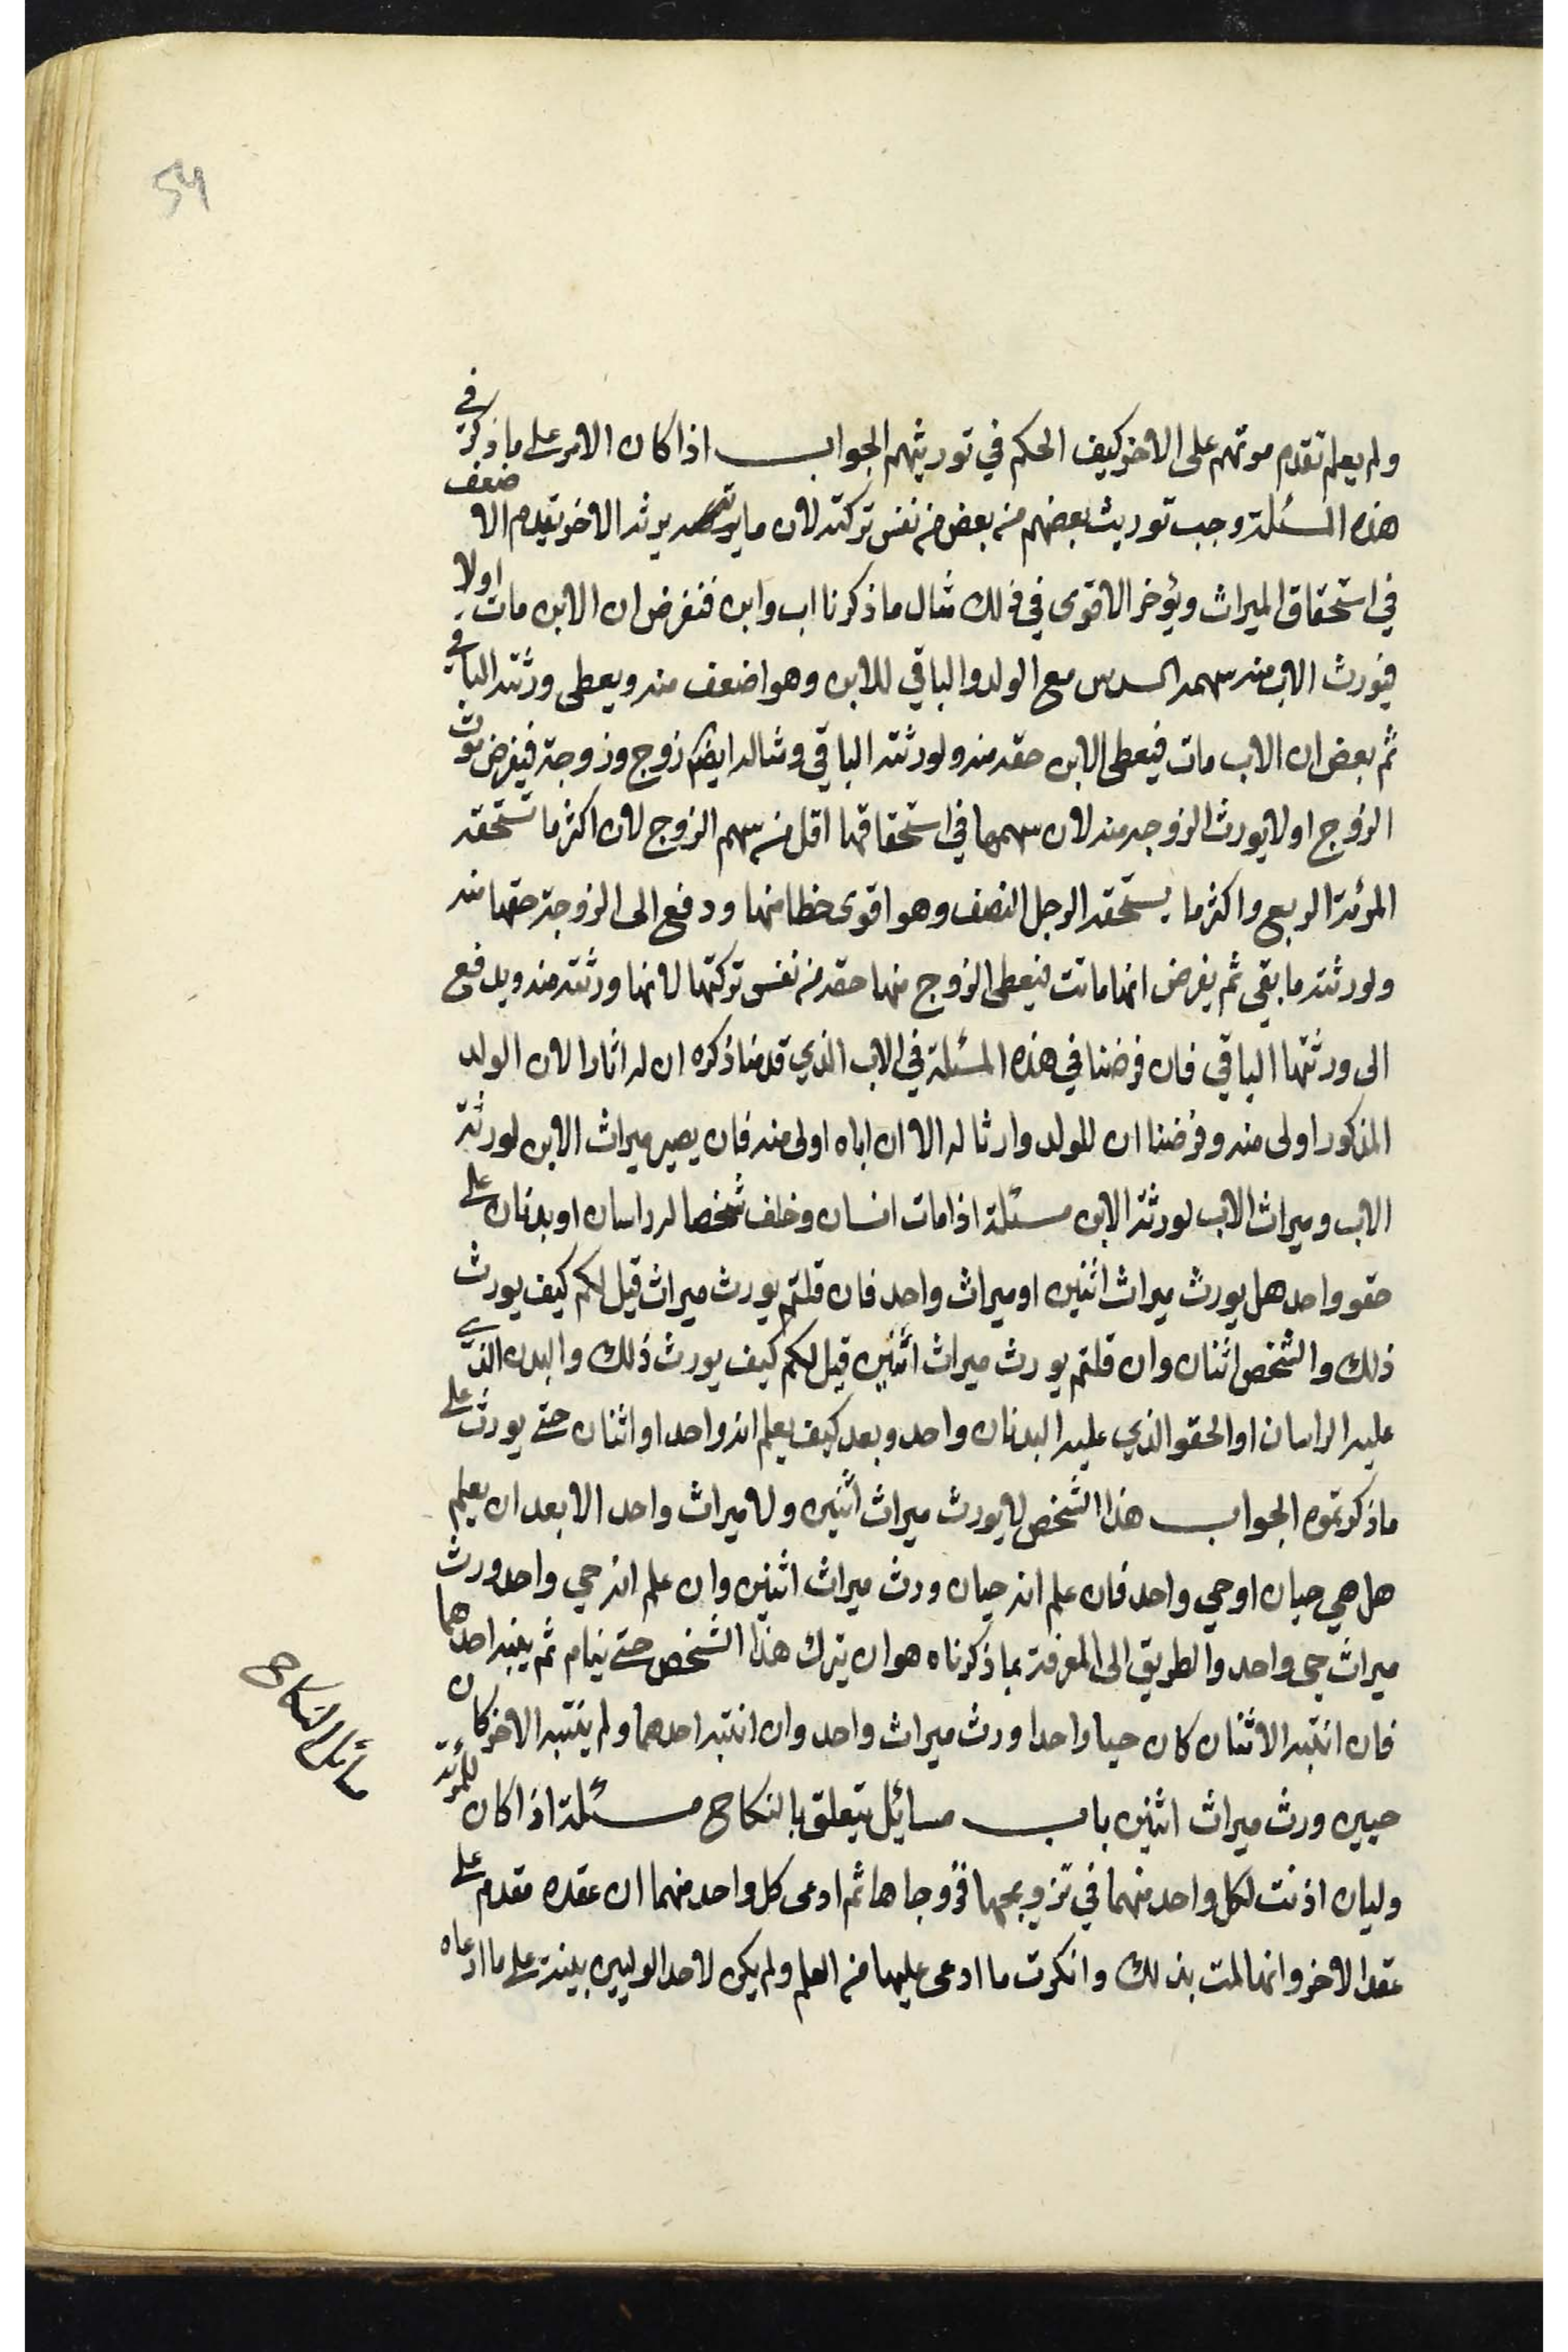 54
ولم يعلم تقدم موتهم على الاخر كيف الحكم في توريثهم الجواب اذا كان الامر على ما ذكر في
هذه المسئلة وجب توريث بعضهم من بعض من نفس تركته لان ما يرثه يرثه الاخر تقدم الاضعف
في استحقاق الميراث ويؤخر الاقوى في ذلك مثال ما ذكرنا اب وابن فنفرض ان الابن مات اولا
فيورث الاب منه سهمه السدس مع الولد والباقي للابن وهو اضعف منه ويعطى ورثته الباقي
ثم بعض ان الاب مات فيعطى الابن حقه منه ولورثته الباقي ومثاله ايضا زوج وزوجة فيفرض موت
الزوج اولا يورث الزوجه منه لان سهمها في استحقاقها اقل من سهم الزوج لان اكثر ما تستحقه
المرئة الربع واكثر ما يستحقه الرجل النصف وهو اقوى حظا منها ودفع الى الزوجة حقها منه
ولورثته ما بقى ثم يفرض انها ماتت فيعطى الزوج منها حقه من نفس تركتها لانها ورثته منه ويدفع
الى ورثتها الباقي فان فرضنا في هذه المسئلة في الاب الذي قدمنا ذكره ان له اثارا لان الولد
المذكور اولى منه وفرضنا ان للولد وارثا له الا ان اباه اولى منه فان يصير ميراث الابن لورثة
الاب وميراث الاب لورثة الابن مسئلة اذا مات انسان وخلف شخصا له راسان او بدنان على
حقو واحد هل يورث ميراث اثنين او ميراث واحد فان قلتم يورث ميراث قيل لكم كيف يورث
ذلك والشخص اثنان وان قلتم يورث ميراث اثنين قيل لكم كيف يورث ذلك والبدن الذي
عليه الراسان او الحقو الذي عليه البدنان واحد وبعد كيف يعلم انه واحد او اثنان حتى يورث على
ما ذكرتموه الجواب هذا الشخص لا يورث ميراث اثنين ولا ميراث واحد الا بعد ان يعلم
هل هي حيان او حي واحد فان علم انه حيان ورث ميراث اثنين وان علم انه حي واحد ورث
ميراث حي واحد والطريق الى المعرفة بما ذكرناه هو ان يترك هذا الشخص حتى ينام ثم ينبه احدهما
فان انتبه الاثنان كان حيا واحدا ورث ميراث واحد وان انتبه احدهما ولم ينتبه الاخر كان
حيين ورث ميراث اثنين باب مسايل يتعلق بالنكاح مسئلة اذا كان للمرئة
وليان اذنت لكل واحد منهما في تزويجها فزوجاها ثم ادعى كل واحد منهما ان عقده مقدم على
عقد الاخر وانها لمت بذلك وانكرت ما ادعى عليها من العلم ولم يكن لاحد الوليين بينة على ما ادعاه
مسائل النكاح